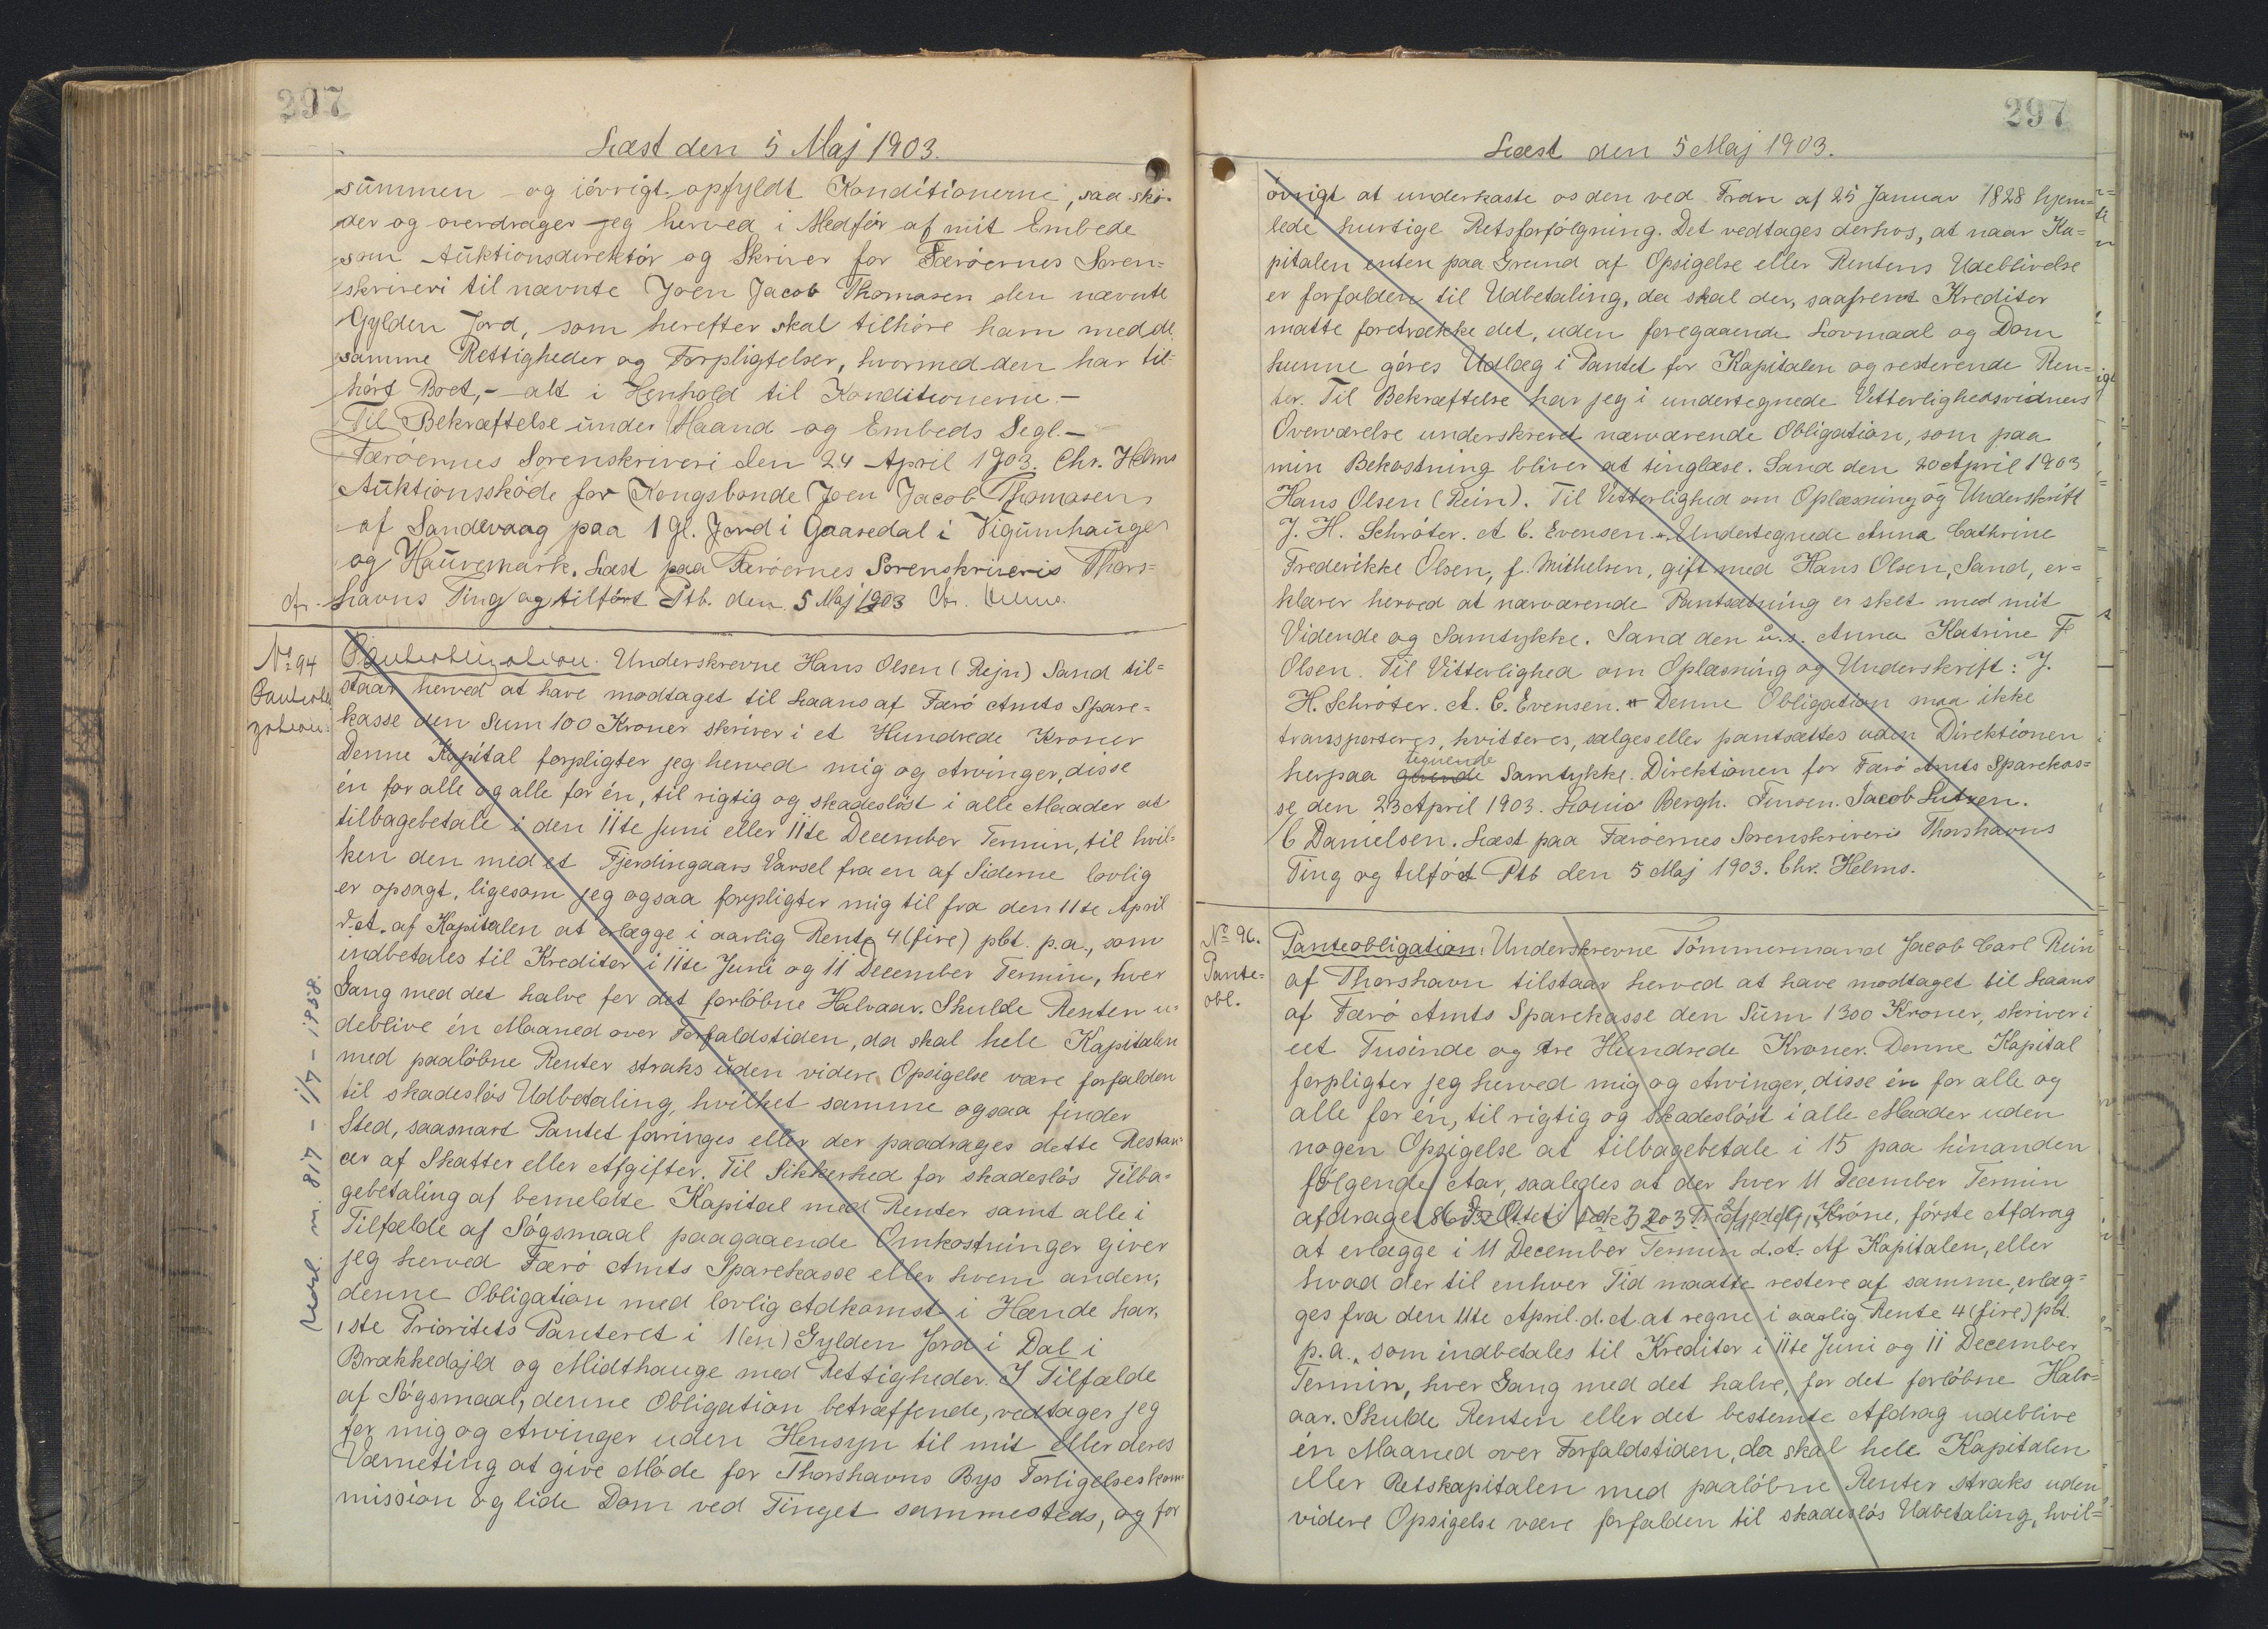 297
Læst den 5 Maj 1903.
summen og iövrigt opfyldt Konditionerne, saa skö-
der og overdrager jeg herved i Medför af mit Embede
som Auktionsdirektör og Skriver for Færöernes Soren-
skriveri til nævnte Joen Jacob Thomasen den nævnte
Gylden Jord, som herefter skal tilhöre ham med de
samme Rettigheder og Forpligtelser, hvormed den har til-
hört Boet, - alt i Henhold til Konditionerne. -
Til Bekræftelse under Haand og Embeds Segl. -
Færöernes Sorenskriveri den 24 April 1903. Chr. Helms
Auktionsskøde for Kongsbonde Joen Jacob Thomasen
af Sandevaag paa 1 Gl. Jord i Gaasedal i Vigumhauge
og Hauvemark. Læst paa Færöernes Sorenskriveris Thors-
havns Ting og tilfört Ptb. den 5 Maj 1903 Chr. Helms.
No 94
Panteobli
zation.
Panteobligation. Underskrevne Hans Olsen (Rejn) Sand til-
staar herved at have modtaget til Laans af Færö Amts Spare-
kasse den Sum 100 Kroner skriver i et Hundrede Kroner
Denne Kapital forpligter jeg herved mig og Arvinger, disse
én for alle og alle for én, til rigtig og skadeslöst i alle Maader at
tilbagebetale i den 11te Juni eller 11te December Termin, til hvil-
ken den med et Fjerdingaars Varsel fra en af Siderne lovlig
er opsagt, ligesom jeg ogsaa forpligter mig til fra den 11te April
d. A. af Kapitalen at erlægge i aarlig Rente 4 (fire) pCt. p.a., som
indbetales til Kreditor i 11te Juni og 11 December Termin, hver
Gang med det halve for det forlöbne Halvaar. Skulde Renten u-
deblive én Maaned over Forfaldstiden, da skal hele Kapitalen
med paalöbne Renter straks uden videre Opsigelse være forfalden
til skadeslös Udbetaling, hvilket samme ogsaa finder
Sted, saasnart Pantet forringes eller der paadrages dette Restan-
cer af Skatter eller Afgifter. Til Sikkerhed for skadeslös Tilba-
gebetaling af bemeldte Kapital med Renter samt alle i
Tilfælde af Sögsmaal paagaaende Omkostninger giver
jeg herved Færö Amts Sparekasse eller hvem anden,
denne Obligation med lovlig Adkomst i Hænde har,
1ste Prioritets Panteret i 1 (en) Gylden Jord i Dal i
Brækkedajld og Midthauge med Rettigheder. I Tilfælde
af Sögsmaal, denne Obligation betræffende, vedtager jeg
for mig og Arvinger uden Hensyn til mit eller deres
Værneting at give Möde for Thorshavns Bys Forligelseskom-
mission og lide Dom ved Tinget sammesteds, og for
817 - 1/7 - 1958.
297
Læst den 5 Maj 1903.
övrigt at underkaste os den ved Frdn af 25 Januar 1828 hjem-
lede hurtige Retsforfölgning. Det vedtages derhos, at naar Ka-
pitalen enten paa Grund af Opsigelse eller Rentens Udeblivelse
er forfalden til Udbetaling, da skal der, saafremt Kreditor
matte foretrække det, uden foregaaende Lovmaal og Dom
kunne göres Udlæg i Pantet for Kapitalen og resterende Ren-
ter. Til Bekræftelse har jeg i undertegnede Vitterlighedsvidners
Overværelse underskrevet nærværende Obligation, som paa
min Bekostning bliver at tinglæse. Sand den 20 April 1903
Hans Olsen (Rein). Til Vitterlighed om Oplæsning og Underskrift
J. H. Schröter. A C. Evensen. Undertegnede Anna Cathrine
Frederikke Olsen, f. Michelsen, gift med Hans Olsen, Sand, er-
klærer herved at nærværende Pantsætning er sket med mit
Vidende og Samtykke. Sand den u.s. Anna Katrine F
Olsen. Til Vitterlighed om Oplæsning og Underskrift: J.
H. Schröter. A. C. Evensen. Denne Obligation maa ikke
transporteres, kvitteres, sælges eller pantsættes uden Direktionen
tegnende
herpaa Samtykke. Direktionen for Færö Amts Sparekas-
se den 23 April 1903. Louis Bergh. Finsen. Jacob Lutzen.
C Danielsen. Læst paa Færöernes Sorenskriveris Thorshavns
Ting og tilfört Ptb den 5 Maj 1903. Chr. Helms.
No 96.
Pante-
obl.
Panteobligation. Underskrevne Tömmermand Jacob Carl Rein
af Thorshavn tilstaar herved at have modtaget til Laans
af Færö Amts Sparekasse den Sum 1300 Kroner, skriver i
eet Tusinde og tre Hundrede Kroner. Denne Kapital
forpligter jeg herved mig og Arvinger, disse én for alle og
alle for én, til rigtig og skadeslöst i alle Maader uden
nogen Opsigelse at tilbagebetale i 15 paa hinanden
fölgende Aar, saaledes at der hver 11 December Termin
afdrages Kröne, förste Afdrag
at erlægge i 11 December Termin d. A. Af Kapitalen, eller
hvad der til enhver Tid maatte restere af samme, erlæg-
ges fra den 11te April d. A. at regne i aarlig Rente 4 (fire) pCt.
p.a., som indbetales til Kreditor i 11te Juni og 11 December
Termin, hver Gang med det halve, for det forlöbne Halv-
aar. Skulde Renten eller det bestemte Afdrag udeblive
én Maaned over Forfaldstiden, da skal hele Kapitalen
eller Retskapitalen med paalöbne Renter straks uden
videre Opsigelse være forfalden til skadeslös Udbetaling, hvil-